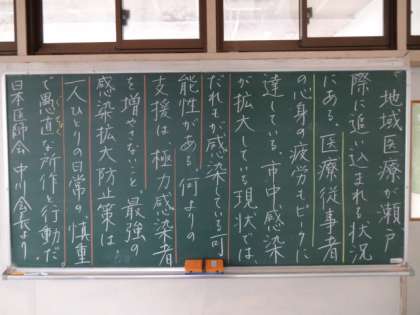 で地域医療が瀬戸
際に追い込まれる状況
にある。医療従事者
の心身の疲労もピークに
達している。市中感染
が拡大している現状では、
だれもが感染している可
能性がある。何よりの
支援は、極力感染者
を増やさないこと。最強の
感染拡大防止策は
一人ひとりの日常の、慎重
で愚直な所作と行動だ。
日本医師会 中川会長より